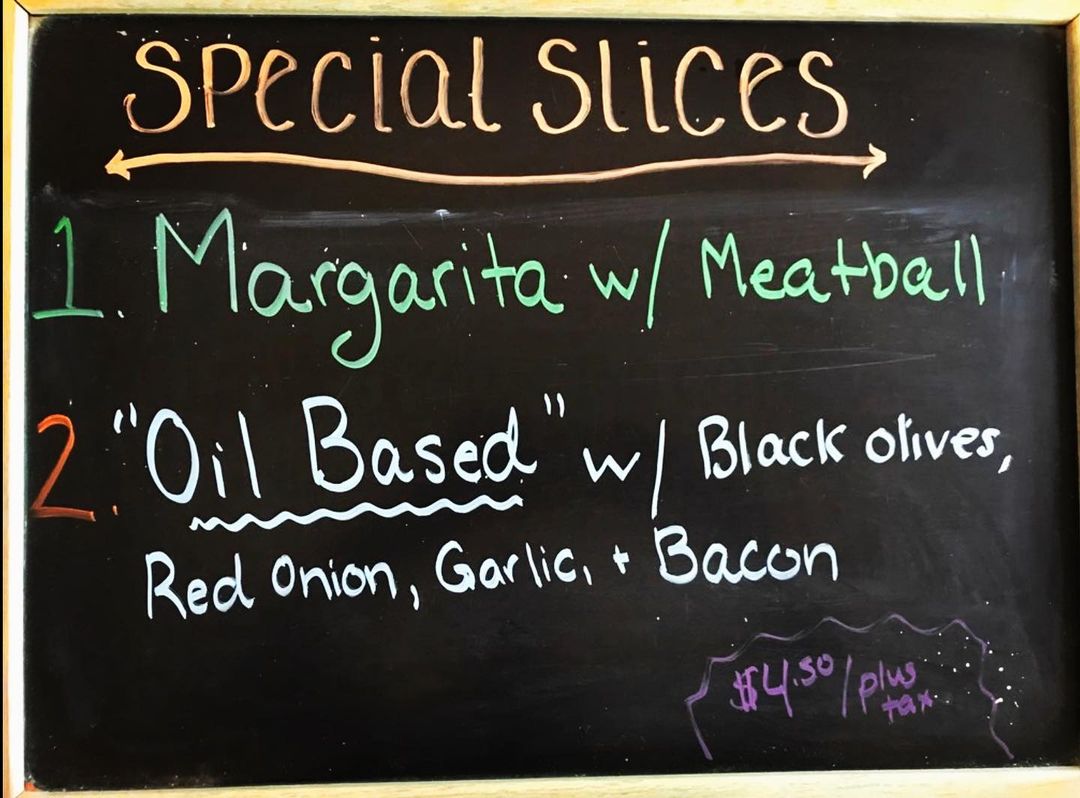 Special Slices
1. Margarita w/ Meatball
2. "Oil Based" w/ Black olives,
Red Onion, Garlic, + Bacon
$4.50/plus
tax